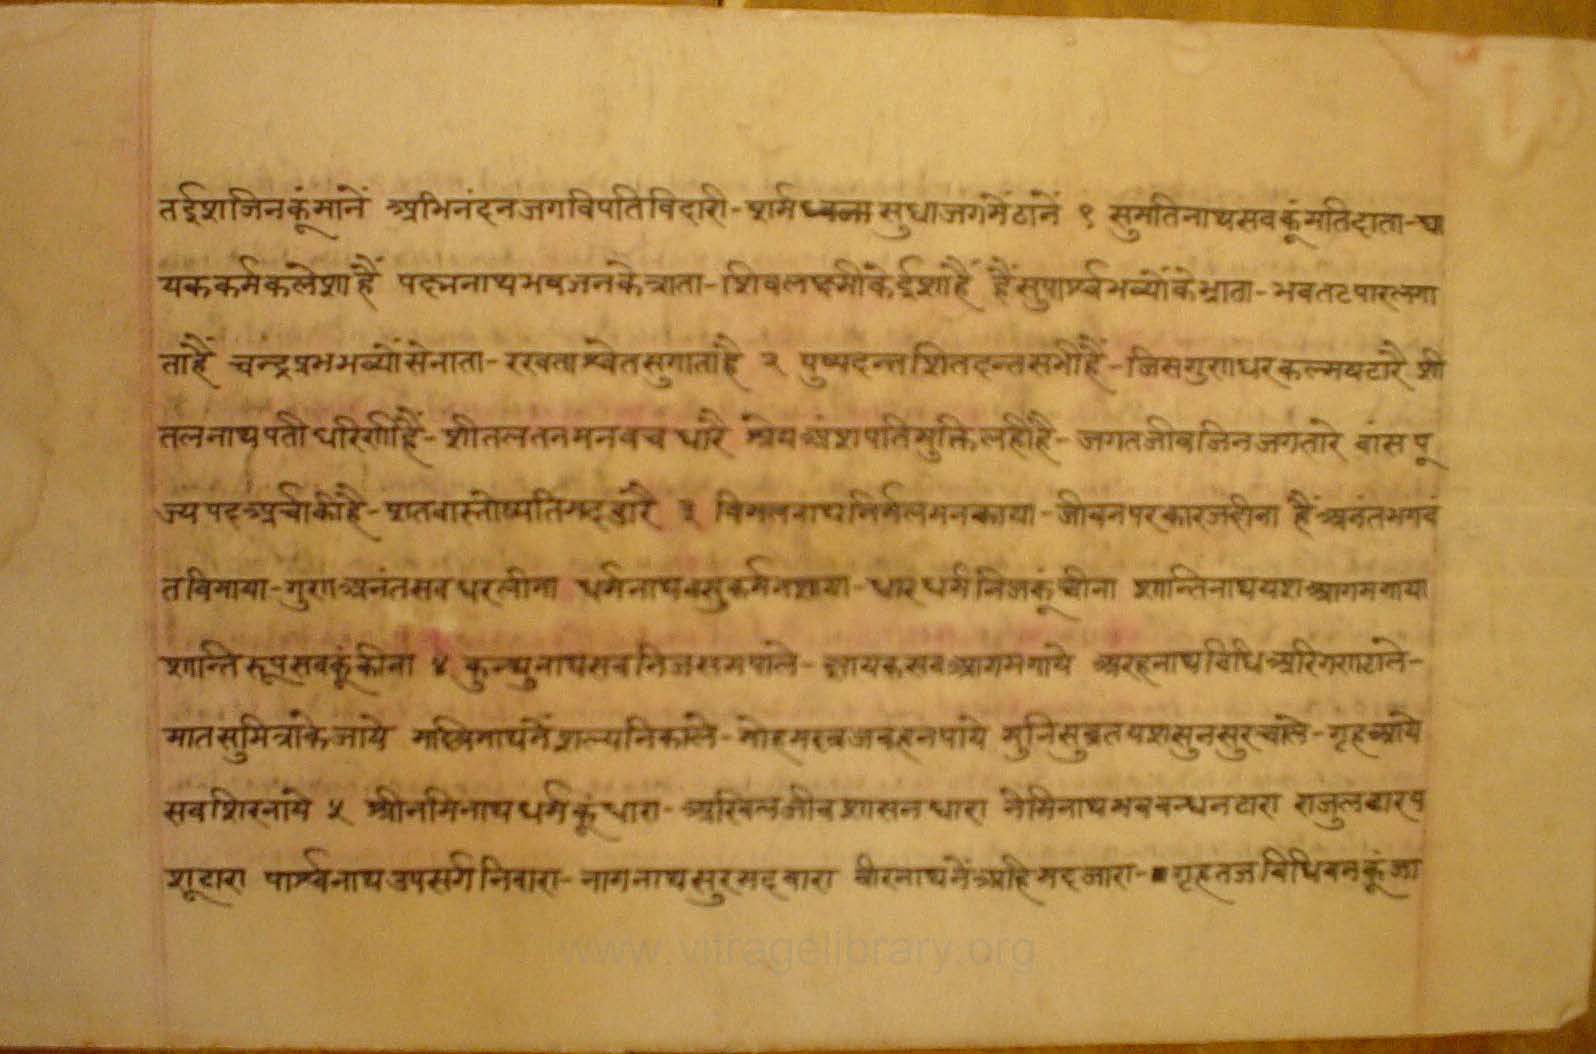 तईशजिनकूंमानें अभिनंदनजगविपतिविदारी-शर्मध्वनासुधाजगमेंठानें १ सुमतिनाथसवकूंमतिदाता-घा
यककर्मकलेशाहैं पद्मनाथभवजनकेत्राता-शिवलक्ष्मीकेईशाहैं हैंसुपार्श्वभव्योंकेभ्राता-भवतटपारलगा
ताहैं चन्द्रप्रभभव्योंसेनाता-रखताश्वेतसुगाताहै २ पुष्पदन्तशितदन्तसभीहैं-जिसगुणधरकल्मषटारै शी
तलनाथपतीधरिणीहैं-शीतलतनमनवचधारै श्रेयअंशपतिमुक्तिलहीहै-जगतजीवजिनजगतारे वांसपू
ज्यपदअर्चाकीहै-शतवास्तोष्पतिमदडारै ३ विमलनाथनिर्मलमनकाया-जीवनपरकारजरीना हैंअनंतभगवं
तविमाया-गुणअनंतसवधरलीना धर्मनाथवसुकर्मनशाया-धारधर्मनिजकूंचीना शान्तिनाथयशआगमगाया
शान्तिरूपसवकूंकीना ४ कुन्थुनाथसवनिजसमपाले-ज्ञायकसवआगमगाये अरहनाथविधिअरिगणटाले-
मातसुमित्राकेजाये मल्लिनाथनेंशल्यनिकाले-मोहमखजवहनपाये मुनिसुव्रतयशसुनसुरचाले-गृहआये
सवशिरनाये ५ श्रीनमिनाथधर्मकूंधारा-अखिलजीवशासनधारा नेमिनाथभववन्धनटारा राजुलवारप
शूटारा पार्श्वनाथउपसर्गनिवारा-नागनाथसुरमदवारा वीरनाथनेंअहिमदजारा-गृहतजविधिवनकूंजा
www.vitragelibrary.org